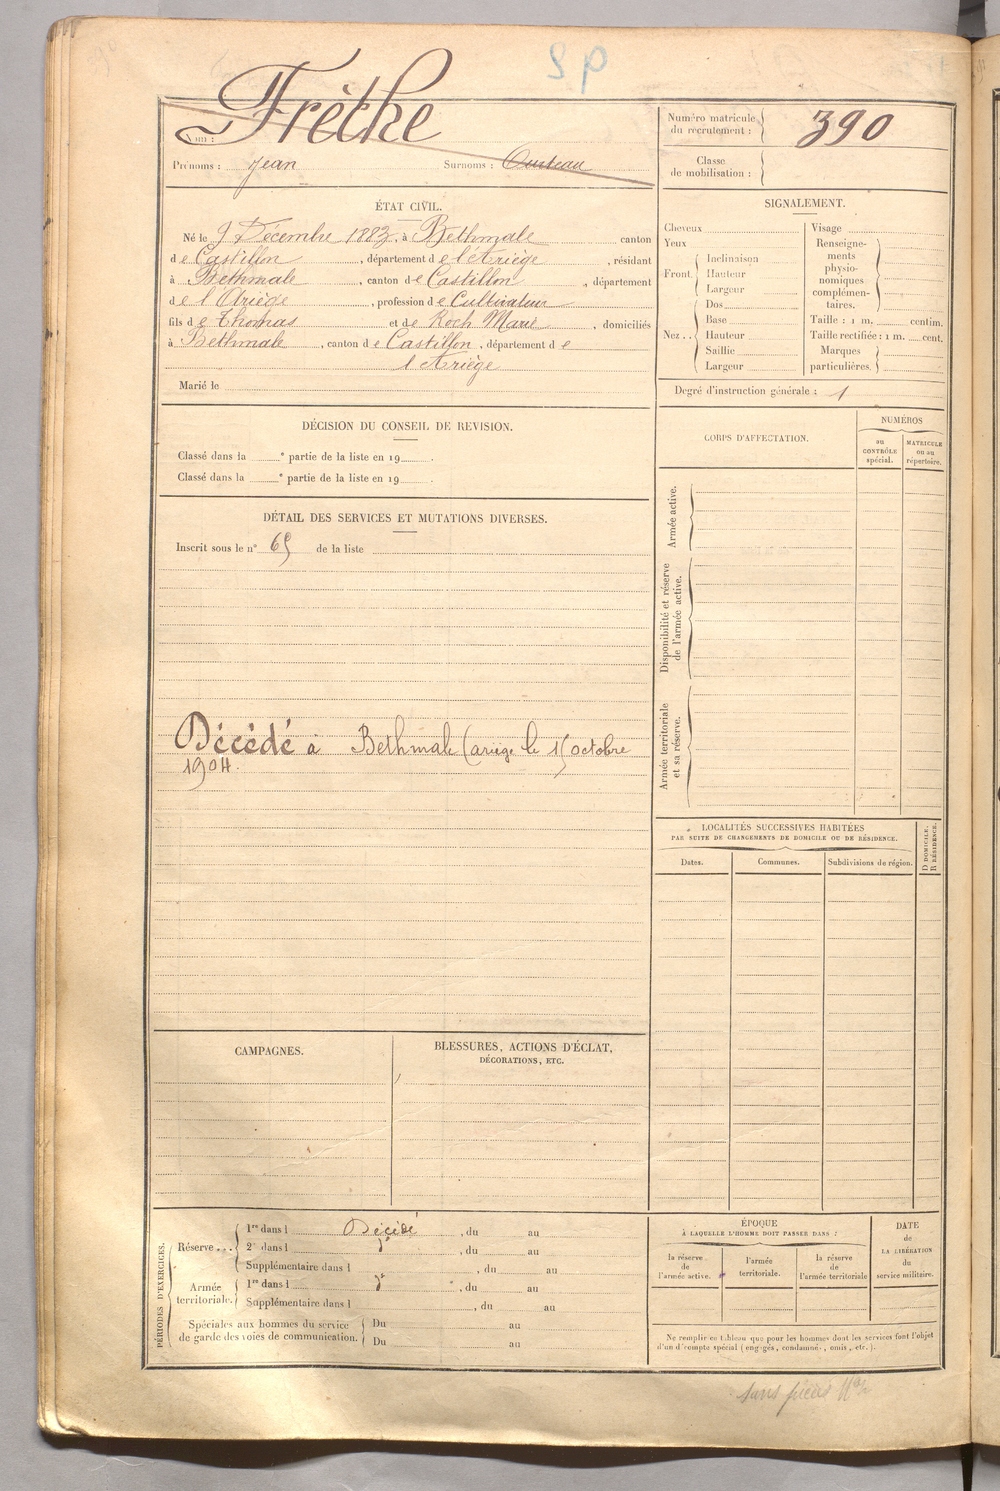 S P
Nom : Frèche
Prénoms : Jean Surnoms :
Numéro matricule du recrutement : 390
Classe de mobilisation :
ÉTAT CIVIL.
Né le 9 Décembre 1883, à Bethmale canton
de Castillon, département de l'Ariège, résidant
à Bethmale, canton de Castillon, département
de l'Ariège, profession de Cultivateur
fils de Thomas et de Roch Marie, domiciliés
à Bethmale, canton de Castillon, département de
l'Ariège
Marié le
SIGNALEMENT.
Cheveux
Yeux
Front. Inclinaison
Hauteur
Largeur
Nez . . Dos
Base
Hauteur
Saillie
Largeur
Visage
Renseignements physionomiques complémentaires.
Taille : 1 m. centim.
Taille rectifiée : 1 m. cent.
Marques particulières.
Degré d'instruction générale : 1
DÉCISION DU CONSEIL DE REVISION.
Classé dans la e partie de la liste en 19 .
Classé dans la e partie de la liste en 19 .
DÉTAIL DES SERVICES ET MUTATIONS DIVERSES.
Inscrit sous le n° 65 de la liste
Décédé à Bethmale (ariège le 15 octobre
1904.
CORPS D'AFFECTATION.
NUMÉROS
au CONTRÔLE spécial.
MATRICULE ou au répertoire.
Armée active.
Disponibilité et réserve de l'armée active.
Armée territoriale et sa réserve.
LOCALITÉS SUCCESSIVES HABITÉES
PAR SUITE DE CHANGEMENTS DE DOMICILE OU DE RÉSIDENCE.
Dates. Communes. Subdivisions de région.
D DOMICILE.
R RÉSIDENCE.
CAMPAGNES.
BLESSURES, ACTIONS D'ÉCLAT,
DÉCORATIONS, ETC.
PÉRIODES D'EXERCICES.
Réserve . . . 1re dans l Décédé, du au
2e dans l do, du au
Supplémentaire dans l , du au
Armée territoriale. 1re dans l do, du au
Supplémentaire dans l , du au
Spéciales aux hommes du service Du au
de garde des voies de communication. Du au
ÉPOQUE
À LAQUELLE L'HOMME DOIT PASSER DANS :
la réserve de l'armée active.
l'armée territoriale.
la réserve de l'armée territoriale
DATE de LA LIBÉRATION du service militaire.
Ne remplir ce tableau que pour les hommes dont les services font l'objet
d'un décompte spécial (engagés, condamnés, omis, etc.).